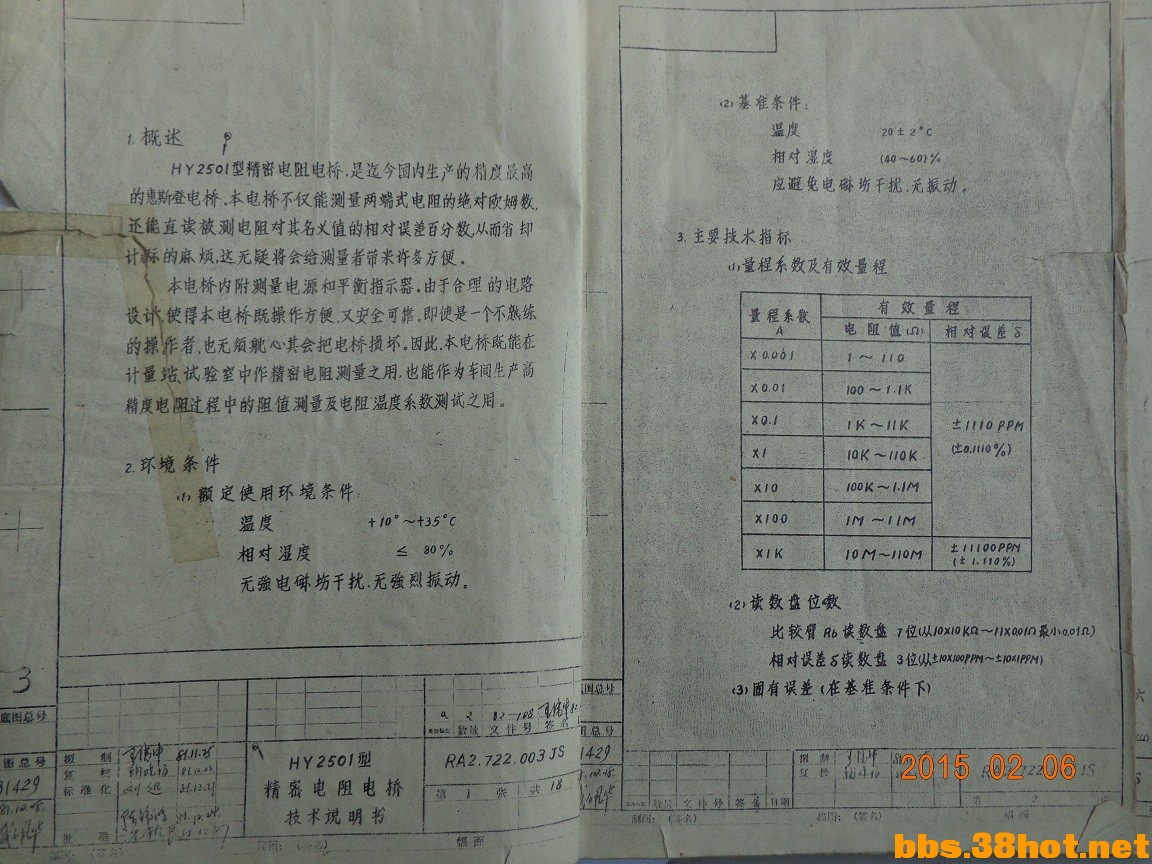 1. 概述
HY2501型精密电阻电桥,是迄今国内生产的精度最高
的惠斯登电桥.本电桥不仅能测量两端式电阻的绝对欧姆数,
还能直读被测电阻对其名义值的相对误差百分数,从而省却
计标的麻烦,这无疑将会给测量者带来许多方便。
本电桥内附测量电源和平衡指示器。由于合理的电路
设计,使得本电桥既操作方便,又安全可靠。即使是一个不熟练
的操作者,也无须躭心其会把电桥损坏。因此,本电桥既能在
计量站、试验室中作精密电阻测量之用,也能作为车间生产高
精度电阻过程中的阻值测量及电阻温度系数测试之用。
2. 环境条件
(1) 额定使用环境条件:
温度 +10°~+35°C
相对湿度 ≤ 80%
无強电磁场干扰.无強烈振动。
3
底图总号
图总号
31429
拟制 81.11.25
复校
标准化
批准
HY2501型
精密电阻电桥
技术说明书
数量 文件号 签名
RA2.722.003JS
第 1 张 共 18
描图: (签名)
幅面
(2) 基准条件:
温度 20±2°C
相对湿度 (40~60)%
应避免电磁场干扰.无振动。
3. 主要技术指标
(1) 量程系数及有效量程
量程系数 A 有效量程
电阻值(Ω) 相对误差δ
X0.001 1~110
X0.01 100~1.1K
X0.1 1K~11K ±1110PPM
(±0.1110%)
X1 10K~110K
X10 100K~1.1M
X100 1M~11M
X1K 10M~110M ±11100PPM
(±1.110%)
(2) 读数盘位数
比较臂Rb读数盘 7位(从10X10KΩ~11X0.01Ω最小0.01Ω)
相对误差δ读数盘 3位(从±10X100PPM~±10X1PPM)
(3) 固有误差(在基准条件下)
图总号
1429
拟制
复校
数量 文件号 签名 日期
制图: (签名) 描图: (签名) 幅面
第 2
2015 02 06
bbs.38hot.net